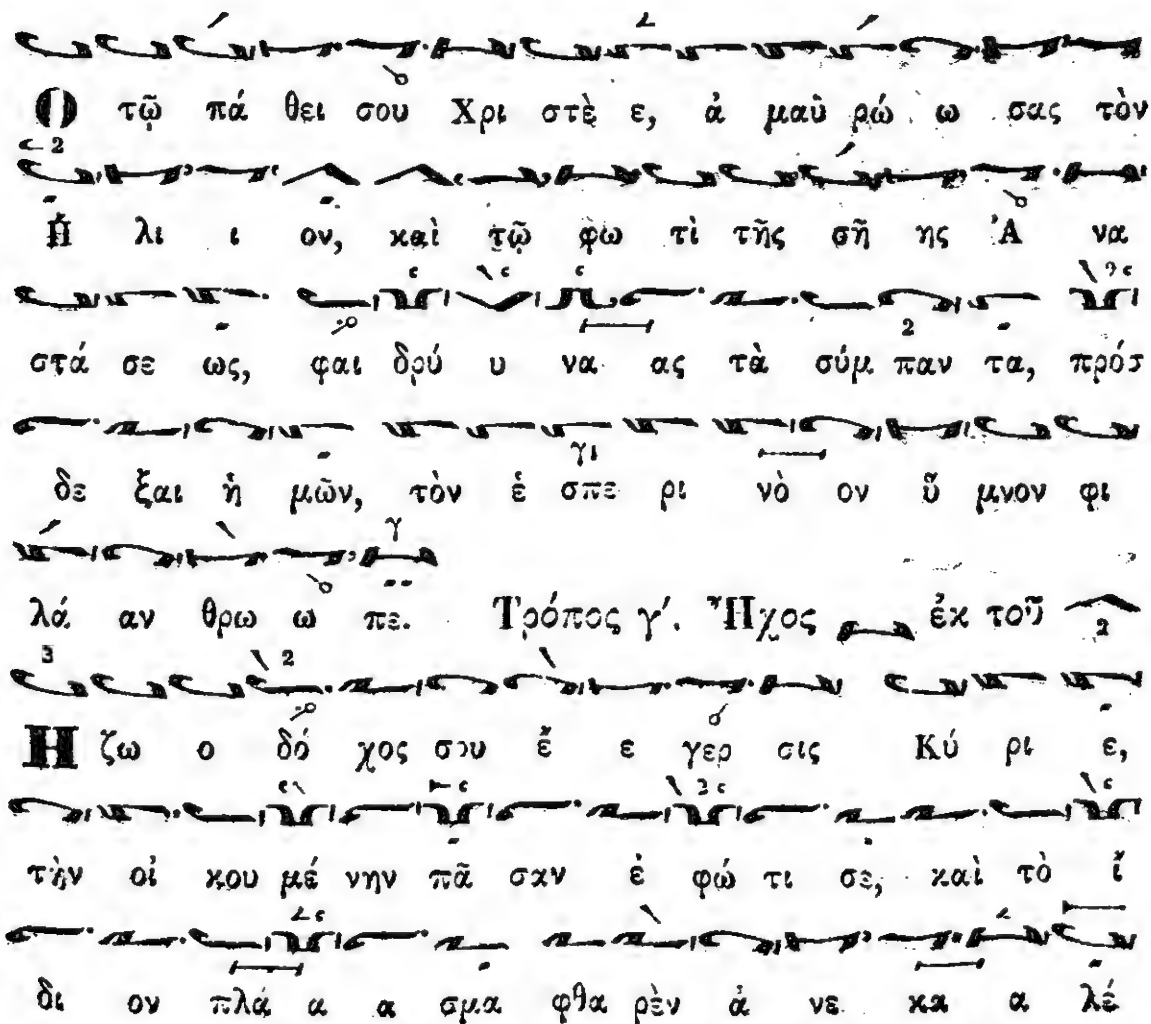 Ὁ τῷ πά θει σου Χρι στὲ ε, ἀ μαῦ ρώ ω σας τὸν
Ἥ λι ι ον, καὶ τῷ φω τὶ τῆς σῆ ης Ἀ να
στά σε ως, φαι δρύ υ να ας τὰ σύμ παν τα, πρόσ
δε ξαι ἡ μῶν, τὸν ἑ σπε ρι νὸ ον ὕ μνον φι
λά αν θρω ω πε. Τρόπος γ΄. Ἦχος ἐκ τοῦ
Η ζω ο δό χος σου ἔ ε γερ σις Κύ ρι ε,
τὴν οἰ κου μέ νην πᾶ σαν ἐ φώ τι σε, καὶ τὸ ἴ
δι ον πλά α α σμα φθα ρὲν ἀ νε κα α λέ